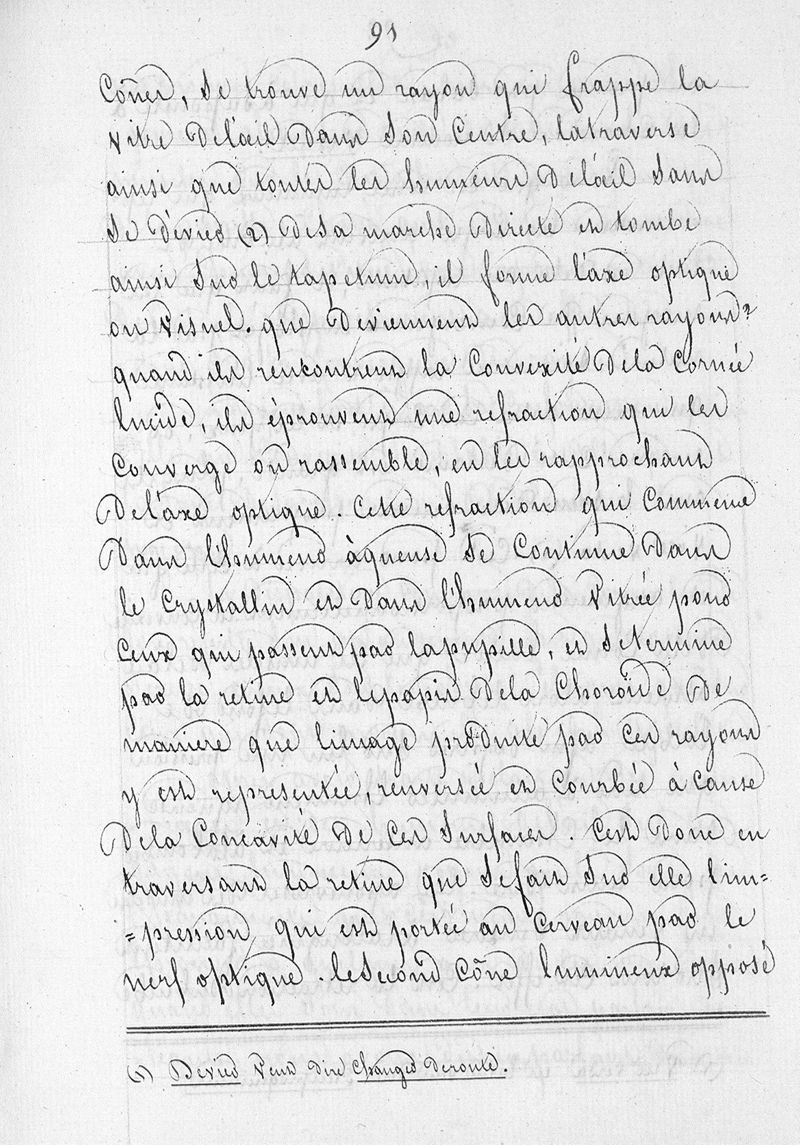 91
Cônes, se trouve un rayon qui frappe la
vitre De l'œil Dans son Centre, la traverse
ainsi que toutes les humeurs De l'œil sans
se Dévier (1) De sa marche Directe et tombe
ainsi sur le tapetum, il forme l'axe optique
ou Visuel. que Deviennent les autres rayons?
quand ils rencontrent la Convexité De la Cornée
lucide, ils éprouvent une refraction qui les
Converge ou rassemble, en les rapprochant
De l'axe optique. Cette refraction qui Commence
Dans l'humeur àqueuse se Continue Dans
le Crystallin et Dans l'humeur Vitrée pour
Ceux qui passent par la pupille, et se termine
par la retine et le papir De la Choroïde De
maniere que limage produite par Ces rayons
y est representée, renversée et Courbée à Cause
De la Concavité De Ces Surfaces. C'est Donc en
traversant la retine que se fait sur elle l'im=
=pression qui est portée au Cerveau par le
nerf optique. le Second Cône lumineux opposé
(1) Dévier Veut dire Changer De route.